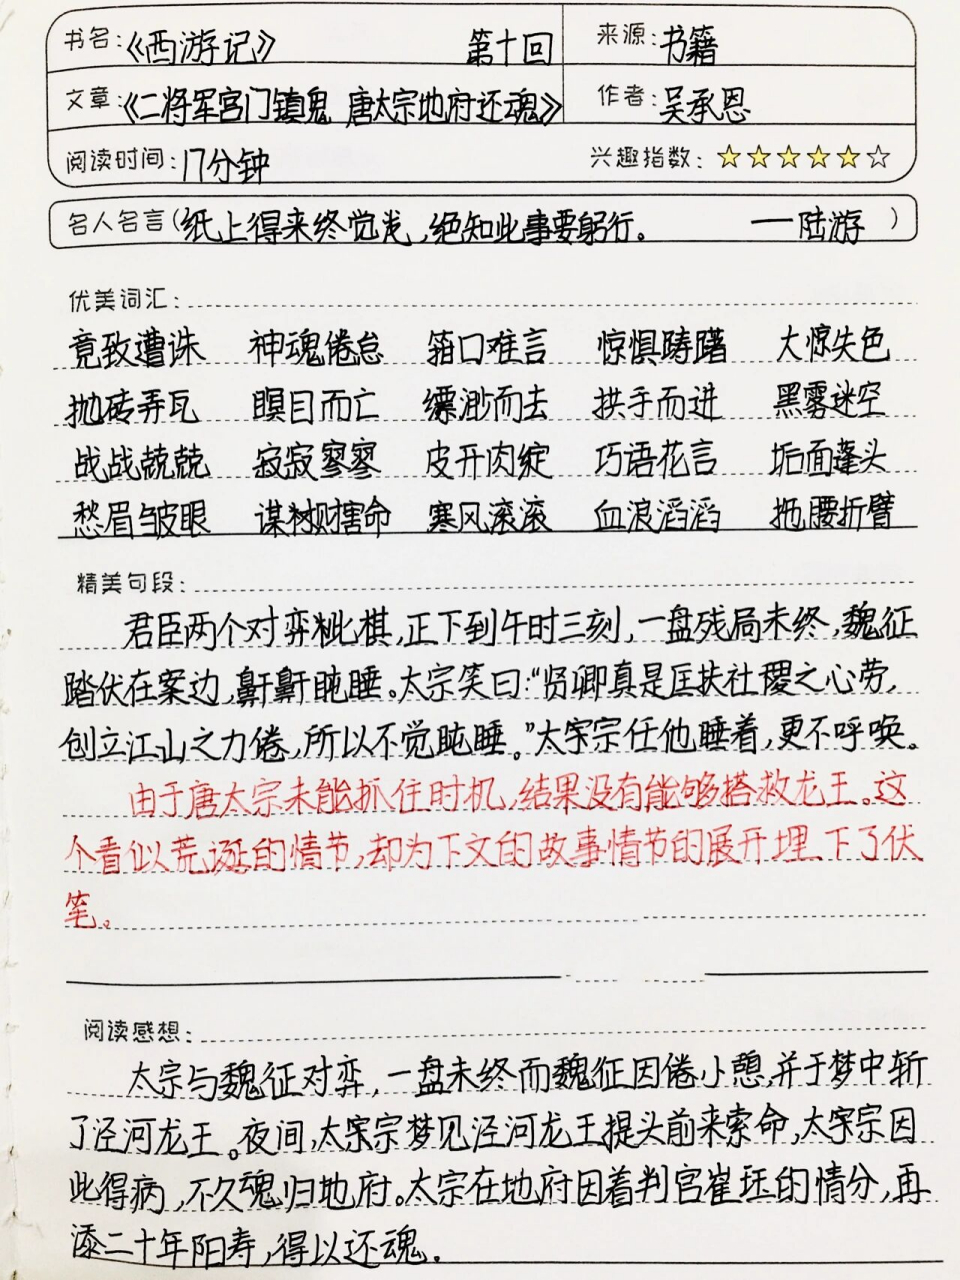 书名:《西游记》 第十回 来源:书籍
文章:《二将军宫门镇鬼 唐太宗地府还魂》 作者:吴承恩
阅读时间:17分钟 兴趣指数:
名人名言(纸上得来终觉浅,绝知此事要躬行。 ——陆游 )
优美词汇:
竟致遭诛 神魂倦怠 箝口难言 惊惧踌躇 大惊失色
抛砖弄瓦 瞑目而亡 缥渺而去 拱手而进 黑雾迷空
战战兢兢 寂寂寥寥 皮开肉绽 巧语花言 垢面蓬头
愁眉皱眼 谋财害命 寒风滚滚 血浪滔滔 拖腰折臂
精美句段:
君臣两个对弈此棋,正下到午时三刻,一盘残局未终,魏征
踏伏在案边,鼾鼾盹睡。太宗笑曰:“贤卿真是匡扶社稷之心劳,
创立江山之力倦,所以不觉盹睡。”太宗任他睡着,更不呼唤。
由于唐太宗未能抓住时机,结果没有能够搭救龙王。这
个看似荒诞的情节,却为下文的故事情节的展开埋下了伏
笔。
阅读感想:
太宗与魏征对弈,一盘未终而魏征因倦小憩,并于梦中斩
了泾河龙王。夜间,太宗梦见泾河龙王提头前来索命,太宗因
此得病,不久魂归地府。太宗在地府因着判官崔珏的情分,再
添二十年阳寿,得以还魂.